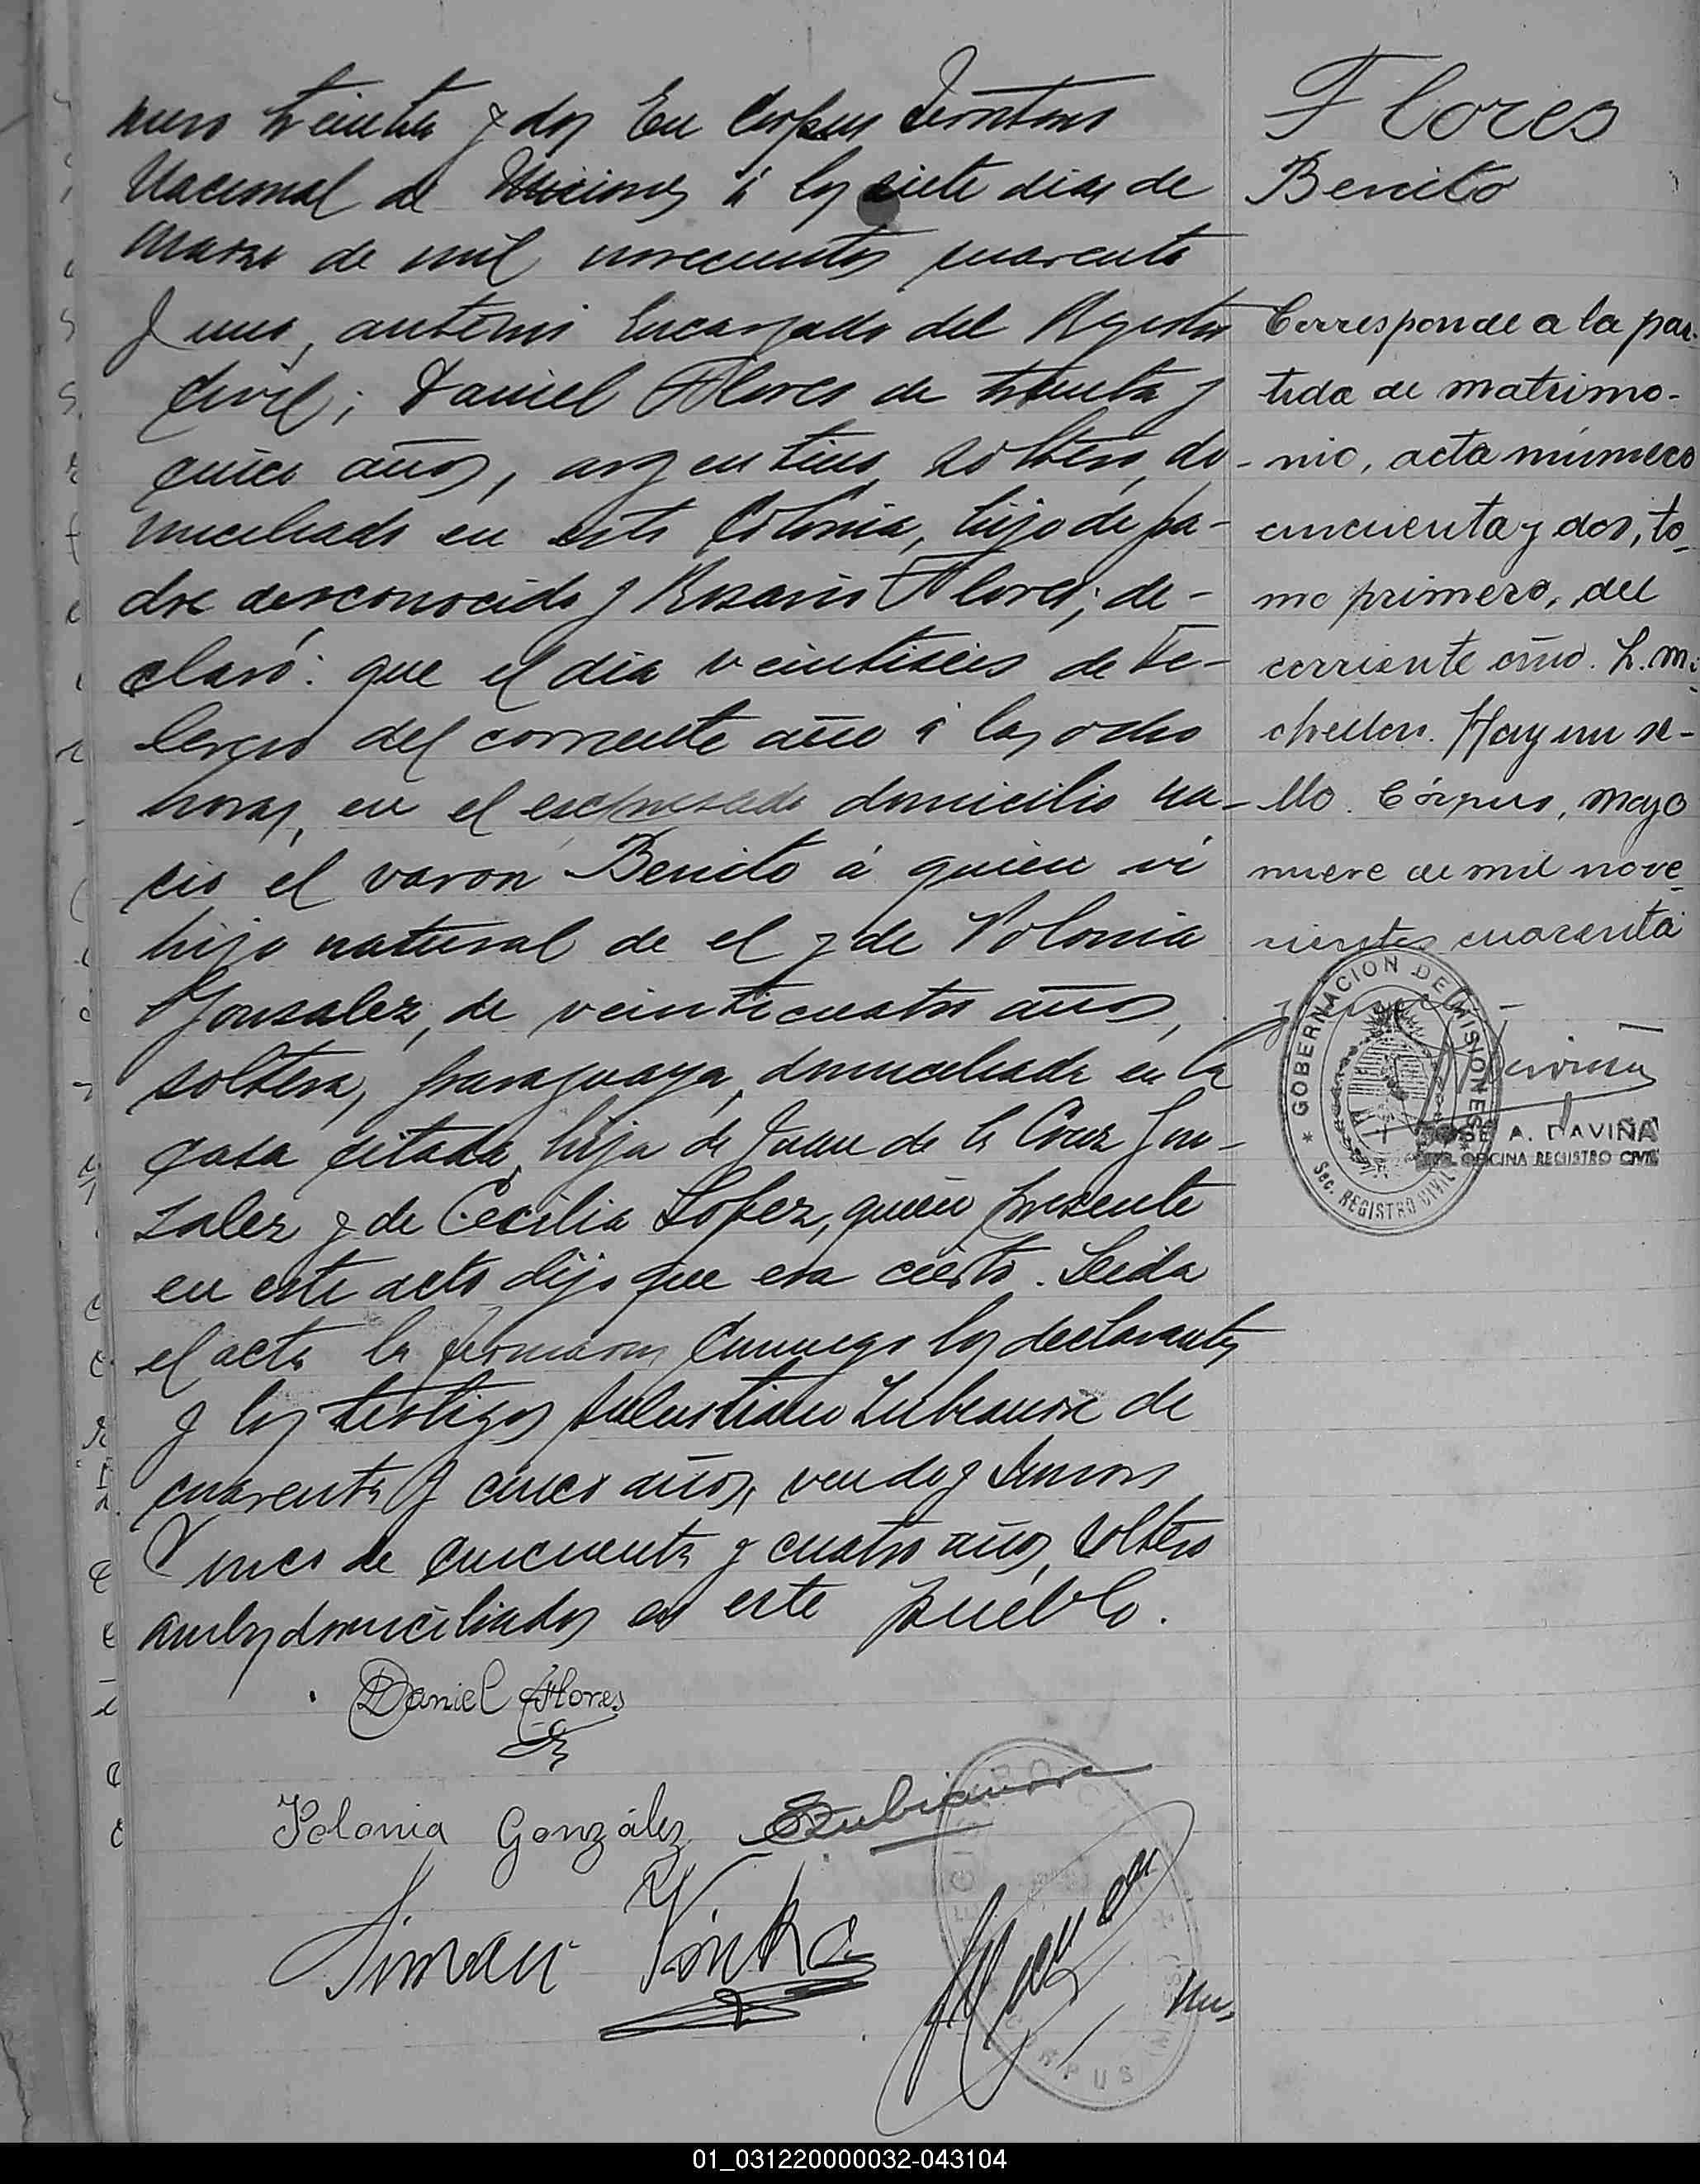 mero treinta y dos En Corpus Territorio
Nacional de Misiones á los siete dias de
Marzo de mil novecientos cuarenta
y uno, antemi Encargado del Registro
Civil; Daniel Flores de treinta y
cinco años, argentino, soltero, do-
miciliado en esta Colonia, hijo de pa-
dre desconocido y Rosario Flores; de-
claró: que el dia veintiseis de Fe-
brero del corriente año á las ocho
horas, en el expresado domicilio na-
cio el varon Benito á quien vi
hijo natural de el y de Polonia
Gonsalez, de veinticuatro años,
soltera, paraguaya, domiciliada en la
casa citada, hija de Juan de la Cruz Gon-
zalez y de Cecilia Lopez, quien presente
en este acto dijo que era cierto. Leida
el acta la firmaron conmigo los declarantes
y los testigos
cuarenta y cinco años, viudo y Simon
de cincuenta y cuatro años, soltero
ambos domiciliados en este pueblo.
Daniel Flores
Polonia González
Simon
Nu,
Flores
Benito
Corresponde a la par-
tida de matrimo-
nio, acta número
cincuenta y dos, to-
mo primero, del
corriente año. L. Mi-
chellon. Hay un se-
llo. Córpus, mayo
nueve de mil nove-
cientos cuarenta
y uno
GOBERNACION DE MISIONES
Sec. REGISTRO CIVIL
JOSE A. DAVIÑA
OFICINA REGISTRO CIVIL
CORPUS
01_031220000032-043104